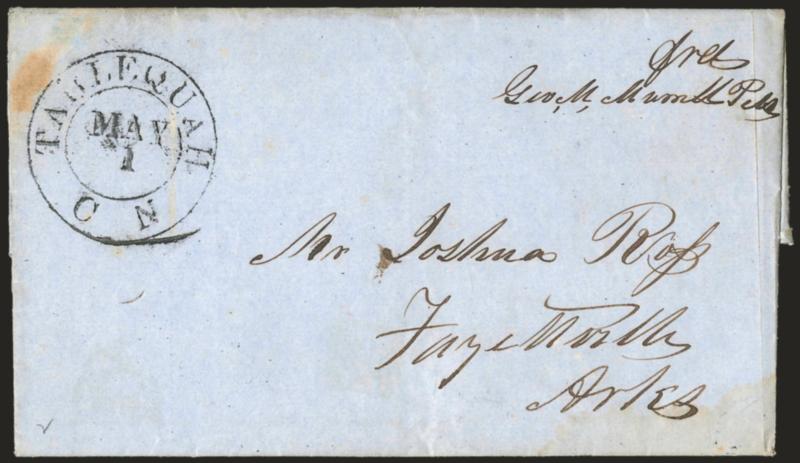 TAHLEQUAH
MAY
1
C N
free
Geo. M. Murrell P.M.
Mr Joshua Ross
Fayetteville
Arks